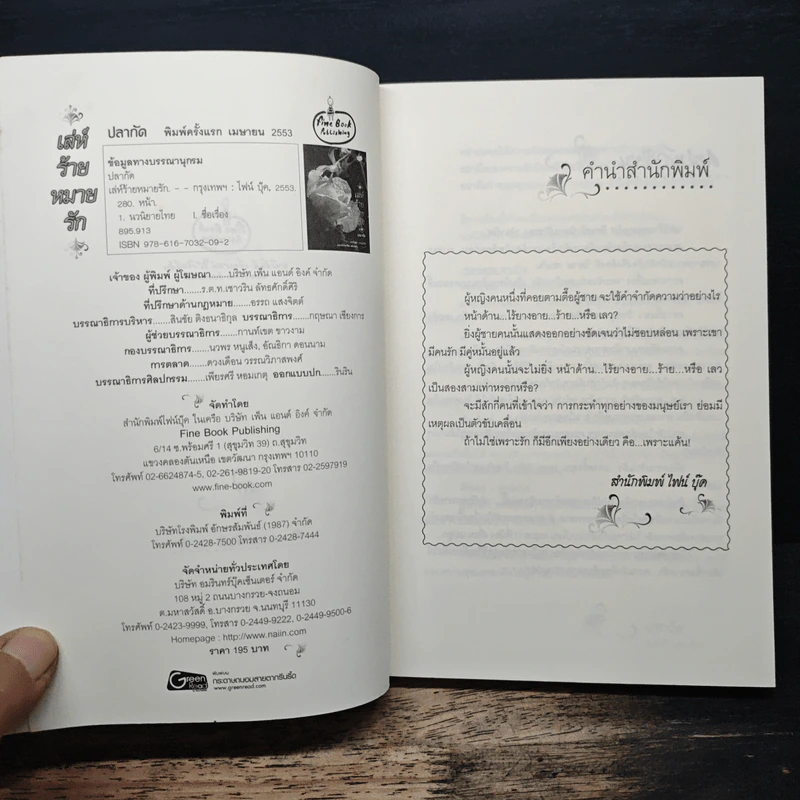 เส่ห์
ร้าย
หมาย
รัก
ปลากัด พิมพ์ครั้งแรก เมษายน 2553
Fine Book
Publishing
ข้อมูลทางบรรณานุกรม
ปลากัด
เส่ห์ร้ายหมายรัก. - - กรุงเทพฯ : ไฟน์ บุ๊ค, 2553.
280. หน้า.
1. นวนิยายไทย I. ชื่อเรื่อง
895.913
ISBN 978-616-7032-09-2
เจ้าของ ผู้พิมพ์ ผู้โฆษณา......บริษัท เพ็น แอนด์ อิงค์ จำกัด
ที่ปรึกษา......ร.ต.ท.เชาวริน ลัทธศักดิ์ศิริ
ที่ปรึกษาด้านกฎหมาย......อรรถ แสงจิตต์
บรรณาธิการบริหาร......สินชัย ติงธนาธิกุล บรรณาธิการ......กฤษณา เชียงการ
ผู้ช่วยบรรณาธิการ......กานท์เขต ขาวงาม
กองบรรณาธิการ......นวพร หนูเส็ง, อัณธิกา ดอนนาม
การตลาด......ดวงเดือน วรรณวิภาสพงศ์
บรรณาธิการศิลปกรรม......เพียรศรี หอมเกตุ ออกแบบปก......รินริน
จัดทำโดย
สำนักพิมพ์ไฟน์บุ๊ค ในเครือ บริษัท เพ็น แอนด์ อิงค์ จำกัด
Fine Book Publishing
6/14 ซ.พร้อมศรี 1 (สุขุมวิท 39) ถ.สุขุมวิท
แขวงคลองตันเหนือ เขตวัฒนา กรุงเทพฯ 10110
โทรศัพท์ 02-6624874-5, 02-261-9819-20 โทรสาร 02-2597919
www.fine-book.com
พิมพ์ที่
บริษัทโรงพิมพ์ อักษรสัมพันธ์ (1987) จำกัด
โทรศัพท์ 0-2428-7500 โทรสาร 0-2428-7444
จัดจำหน่ายทั่วประเทศโดย
บริษัท อมรินทร์บุ๊คเซ็นเตอร์ จำกัด
108 หมู่ 2 ถนนบางกรวย-จงถนอม
ต.มหาสวัสดิ์ อ.บางกรวย จ.นนทบุรี 11130
โทรศัพท์ 0-2423-9999, โทรสาร 0-2449-9222, 0-2449-9500-6
Homepage : http://www.naiin.com
ราคา 195 บาท
Green
Read
พิมพ์บน
กระดาษถนอมสายตากรีนรี้ด
www.greenread.com
คำนำสำนักพิมพ์
ผู้หญิงคนหนึ่งที่คอยตามตื๊อผู้ชาย จะใช้คำจำกัดความว่าอย่างไร
หน้าด้าน...ไร้ยางอาย...ร้าย...หรือ เลว?
ยิ่งผู้ชายคนนั้นแสดงออกอย่างชัดเจนว่าไม่ชอบหล่อน เพราะเขา
มีคนรัก มีคู่หมั้นอยู่แล้ว
ผู้หญิงคนนั้นจะไม่ยิ่ง หน้าด้าน...ไร้ยางอาย...ร้าย...หรือ เลว
เป็นสองสามเท่าหรอกหรือ?
จะมีสักกี่คนที่เข้าใจว่า การกระทำทุกอย่างของมนุษย์เรา ย่อมมี
เหตุผลเป็นตัวขับเคลื่อน
ถ้าไม่ใช่เพราะรัก ก็มีอีกเพียงอย่างเดียว คือ...เพราะแค้น!
สำนักพิมพ์ ไฟน์ บุ๊ค